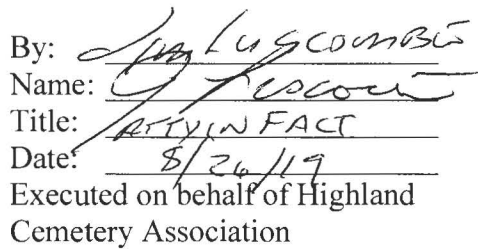 By: Luscombe
Name:
Title: ATTY IN FACT
Date: 8/26/19
Executed on behalf of Highland
Cemetery Association